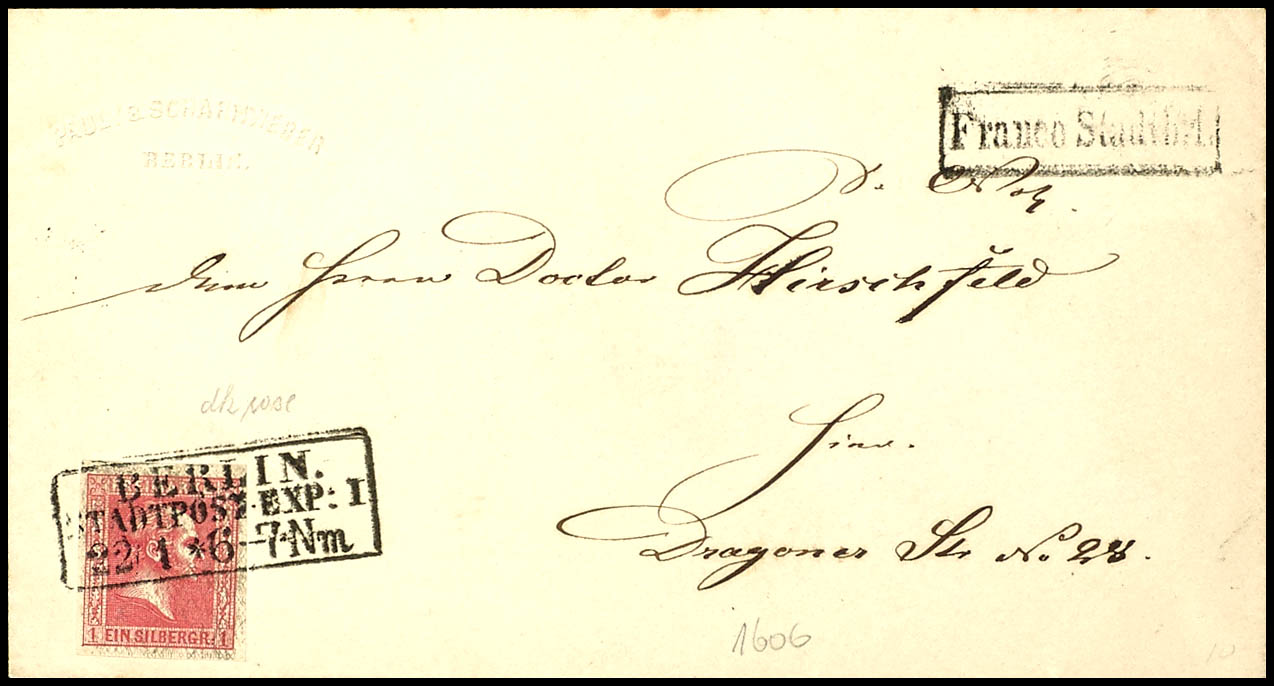 PAULY & SCHARNWEBER
BERLIN.
Franco Stadtbrf.
Herrn Doctor Hirschfeld
Hier.
Dragoner Str No 28.
dk rose
BERLIN.
STADTPOST-EXP: I
22 1 * 6-7 Nm
1 EIN SILBERGR. 1
1606